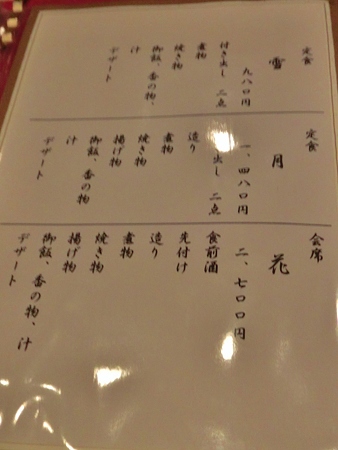 定食
雪
九八〇円
付き出し 二点
煮物
焼き物
御飯、香の物、
汁
デザート
定食
月
一、四八〇円
出し 二点
造り
煮物
焼き物
揚げ物
御飯、香の物
汁
デザート
会席
花
二、七〇〇円
食前酒
先付け
造り
煮物
焼き物
揚げ物
御飯、香の物、汁
デザート